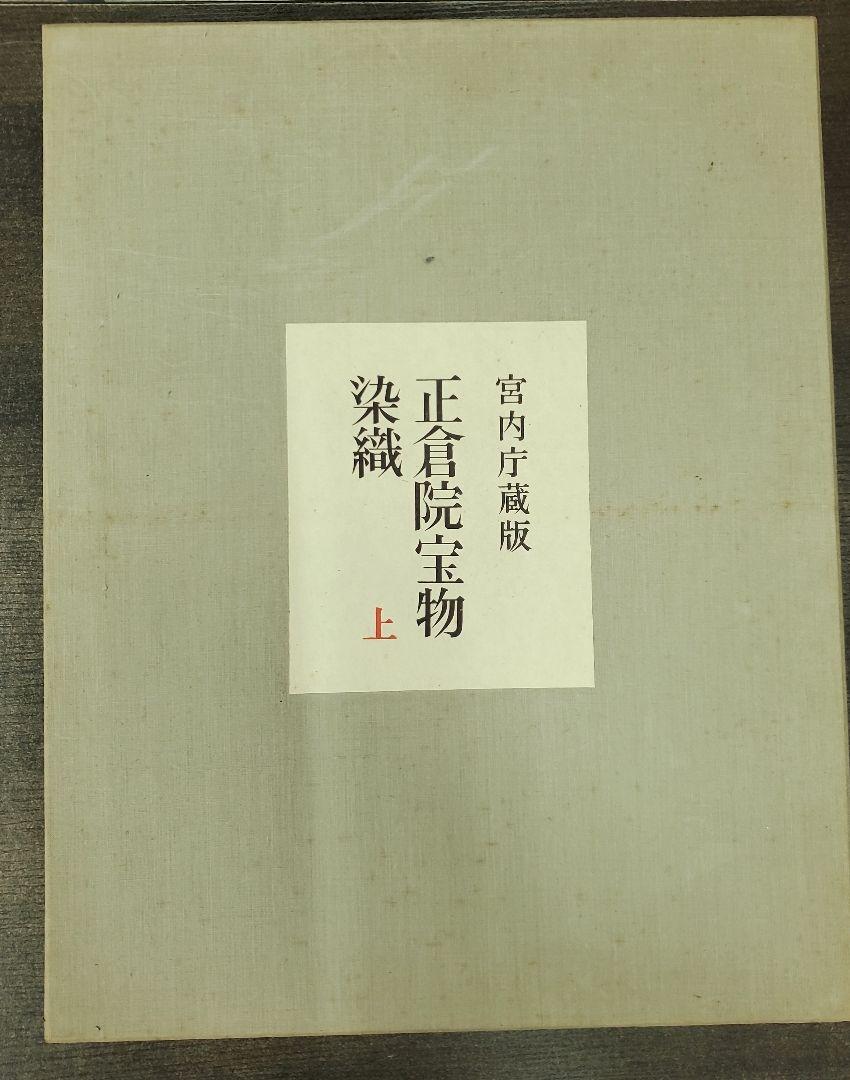 宮内庁蔵版
正倉院宝物
染織
上